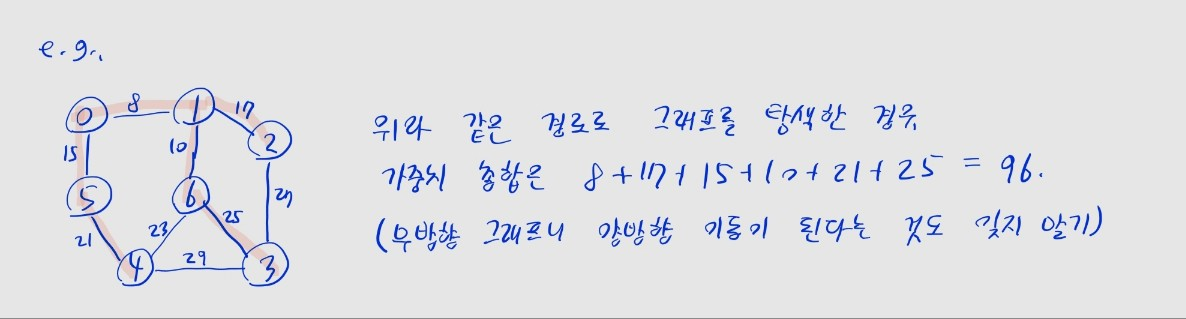 e.g.,
0 8 1 17
2
15 10
5 6 27
21 23 25
4 29 3
위와 같은 경로로 그래프를 탐색한 경우,
가중치 총합은 8+17+15+10+21+25 = 96.
(무방향 그래프니 양방향 이동이 된다는 것도 잊지 말기)